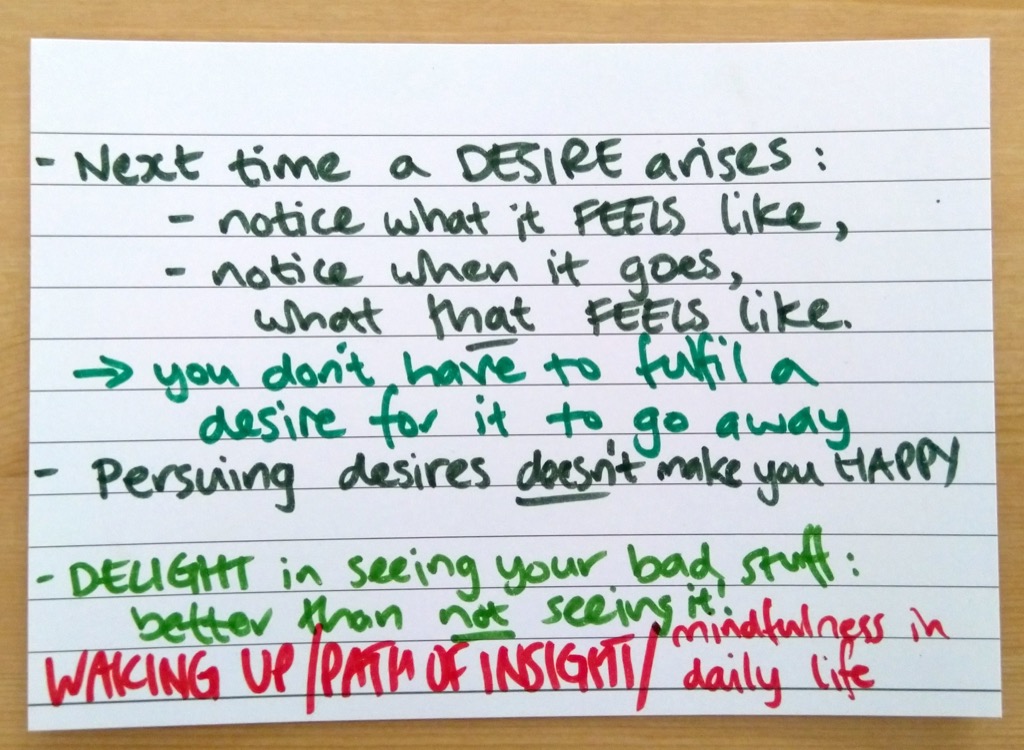 - Next time a DESIRE arises:
- notice what it FEELS like,
- notice when it goes,
what that FEELS like.
→ you don't have to fulfil a
desire for it to go away
- Persuing desires doesn't make you HAPPY
- DELIGHT in seeing your bad stuff:
better than not seeing it!
WAKING UP/PATH OF INSIGHT/mindfulness in
daily life